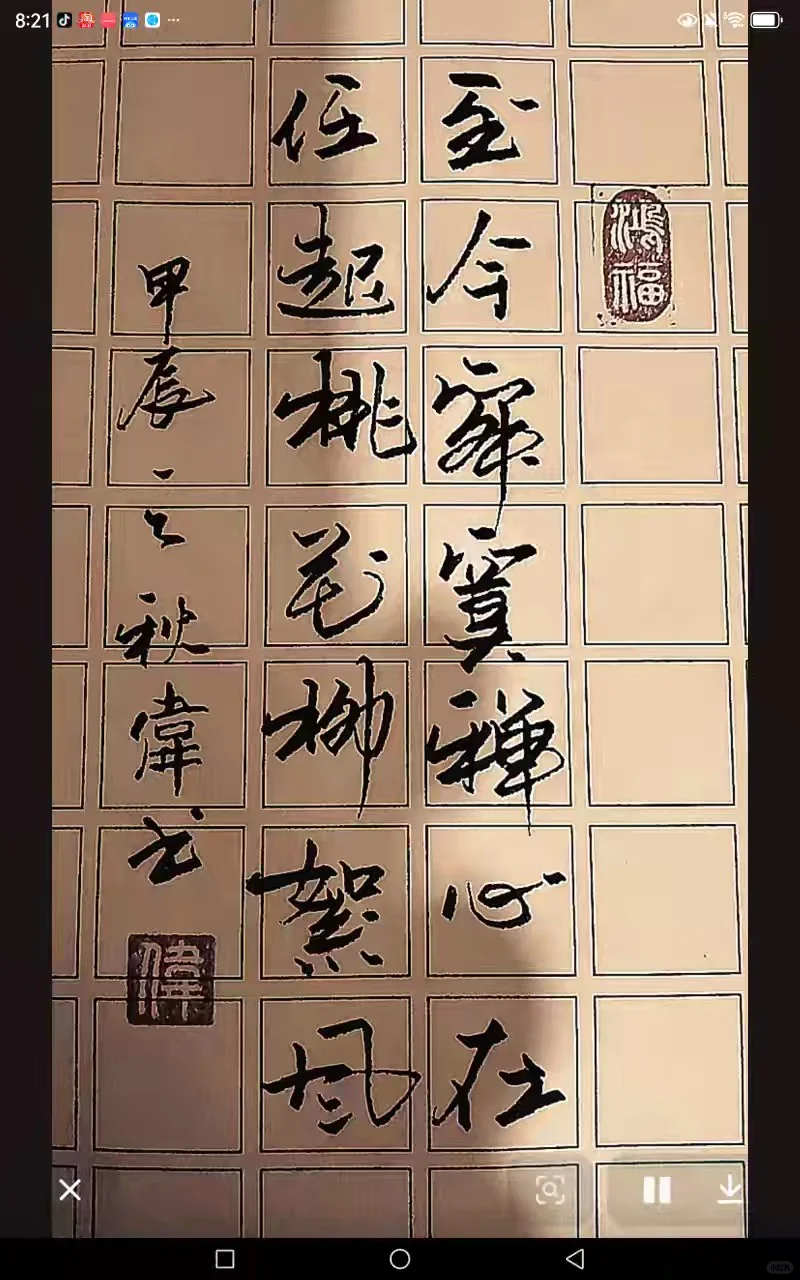 8:21
鴻福
至今寂寞禅心在
任起桃花柳絮風
甲辰之秋偉书
偉